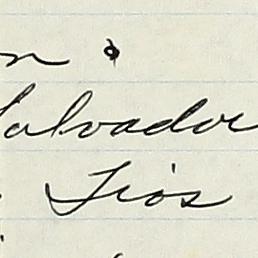 n &
Salvador
Tios